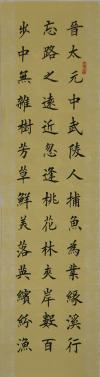 晉太元中武陵人捕魚為業緣溪行
忘路之遠近忽逢桃花林夾岸數百
步中無雜樹芳草鮮美落英繽紛漁